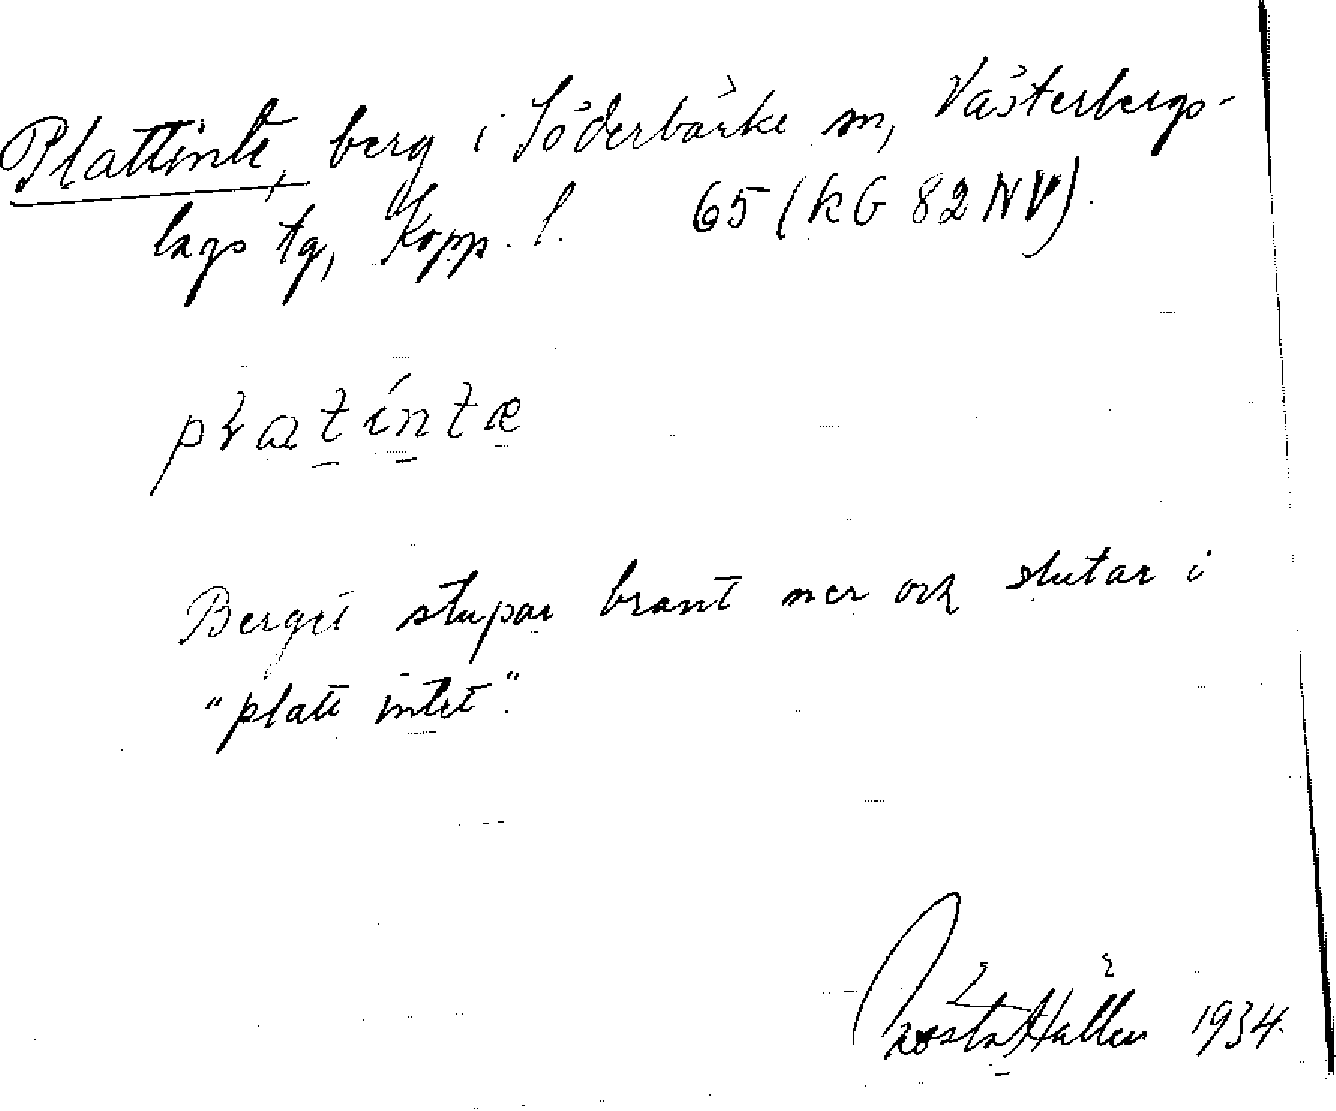 Plattinte, berg i Söderbärke sn, Västerbergs-
lags tg, Kopp. l. 65 (kG 82 NV).
platíntæ
Berget stupar brant ner och slutar i
"platt intet".
Gösta Hallén 1934.